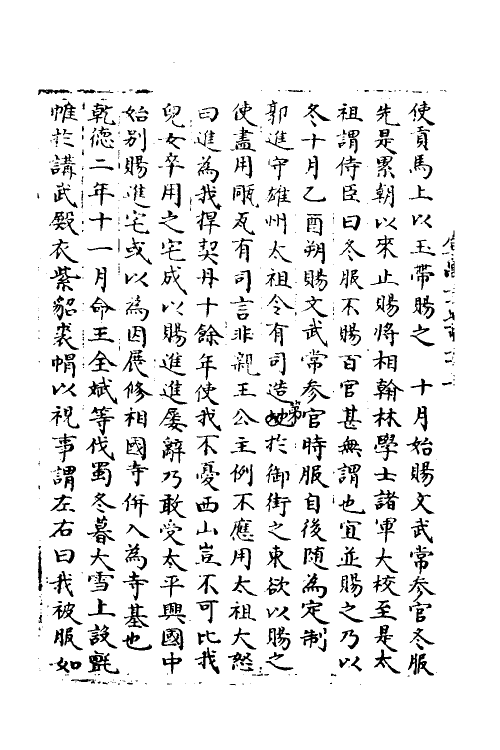 使貢馬上以玉帶賜之　十月始賜文武常参官冬服
先是累朝以來止賜將相翰林學士諸軍大校至是太
祖謂侍臣曰冬服不賜百官甚無謂也宜並賜之乃以
冬十月乙酉朔賜文武常参官時服自後随為定制
郭進守雄州太祖令有司造第於御街之東欲以賜之
使盡用㼧瓦有司言非親王公主例不應用太祖大怒
曰進為我捍契丹十餘年使我不憂西山豈不可比我
兒女卒用之宅成以賜進進屡辭乃敢受太平興國中
始别賜進宅或以為因展修相國寺併入為寺基也
乾徳二年十一月命王全斌等伐蜀冬暮大雪上設氈
帷於講武殿衣紫貂裘帽以視事謂左右曰我被服如